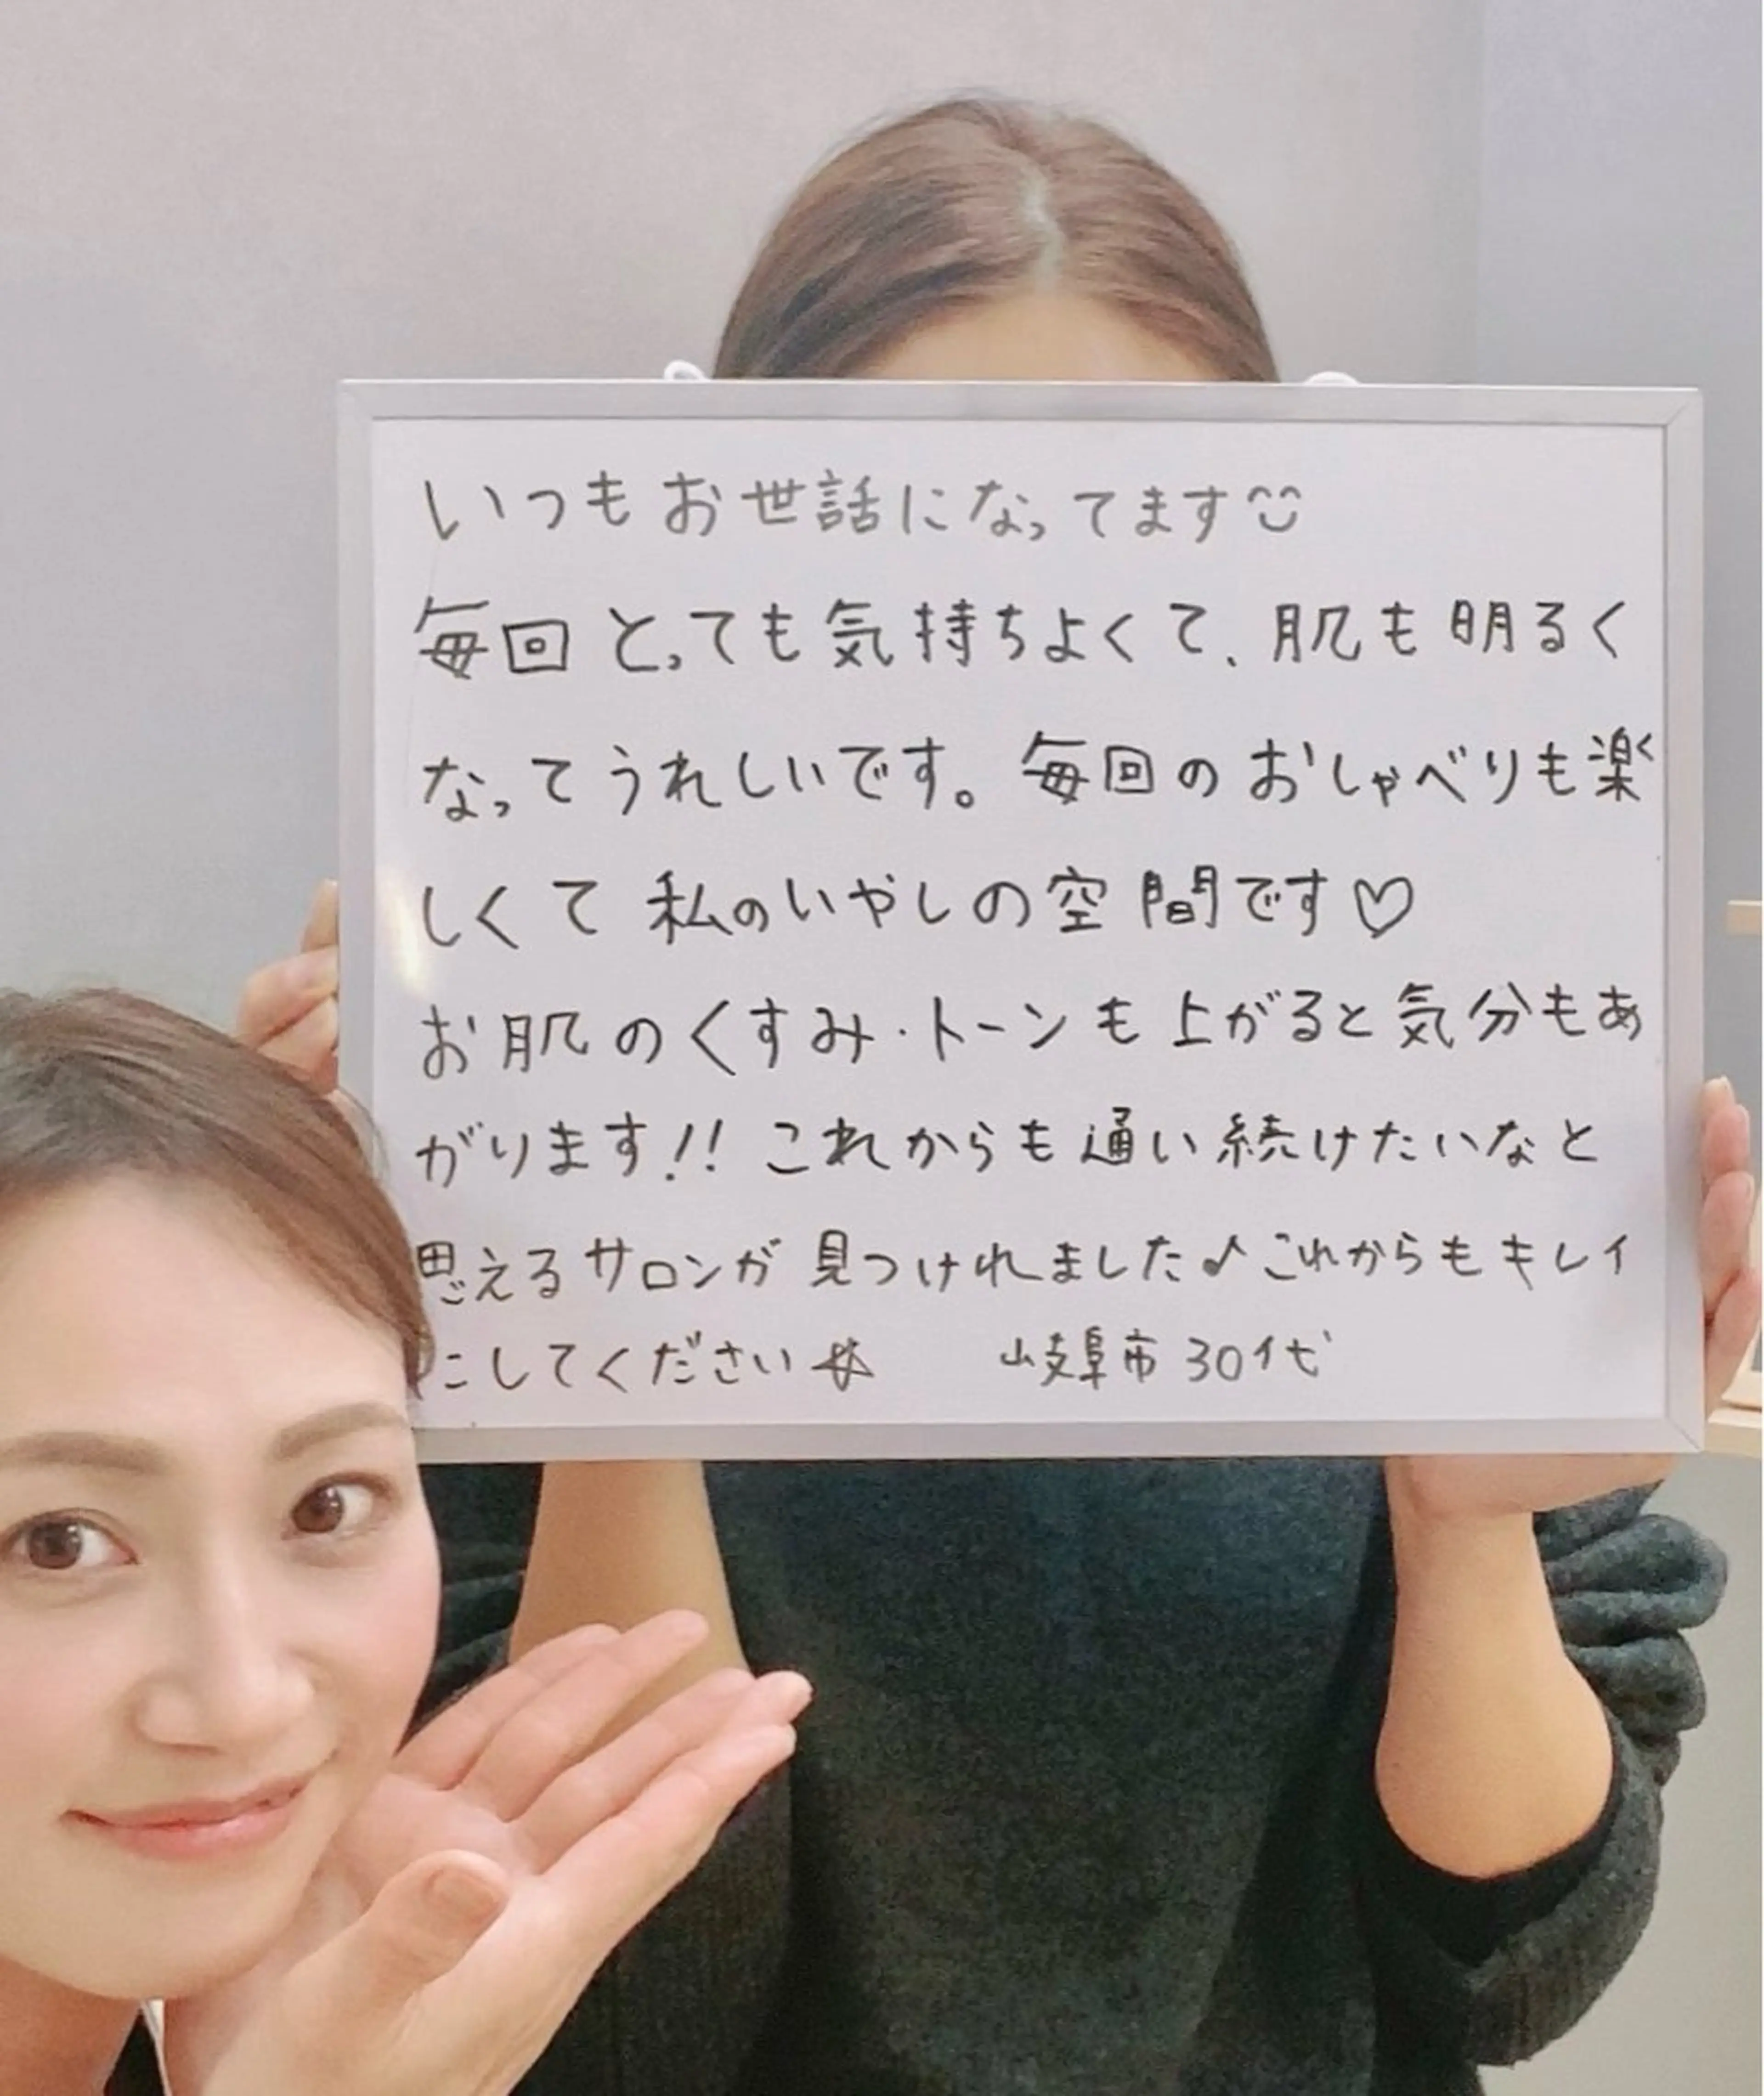 いつもお世話になってます
毎回とっても気持ちよくて、肌も明るく
なってうれしいです。毎回のおしゃべりも楽
しくて私のいやしの空間です♡
お肌のくすみ・トーンも上がると気分もあ
がります!!これからも通い続けたいなと
思えるサロンが見つけれました♪これからもキレイ
にしてください☆ 岐阜市 30代